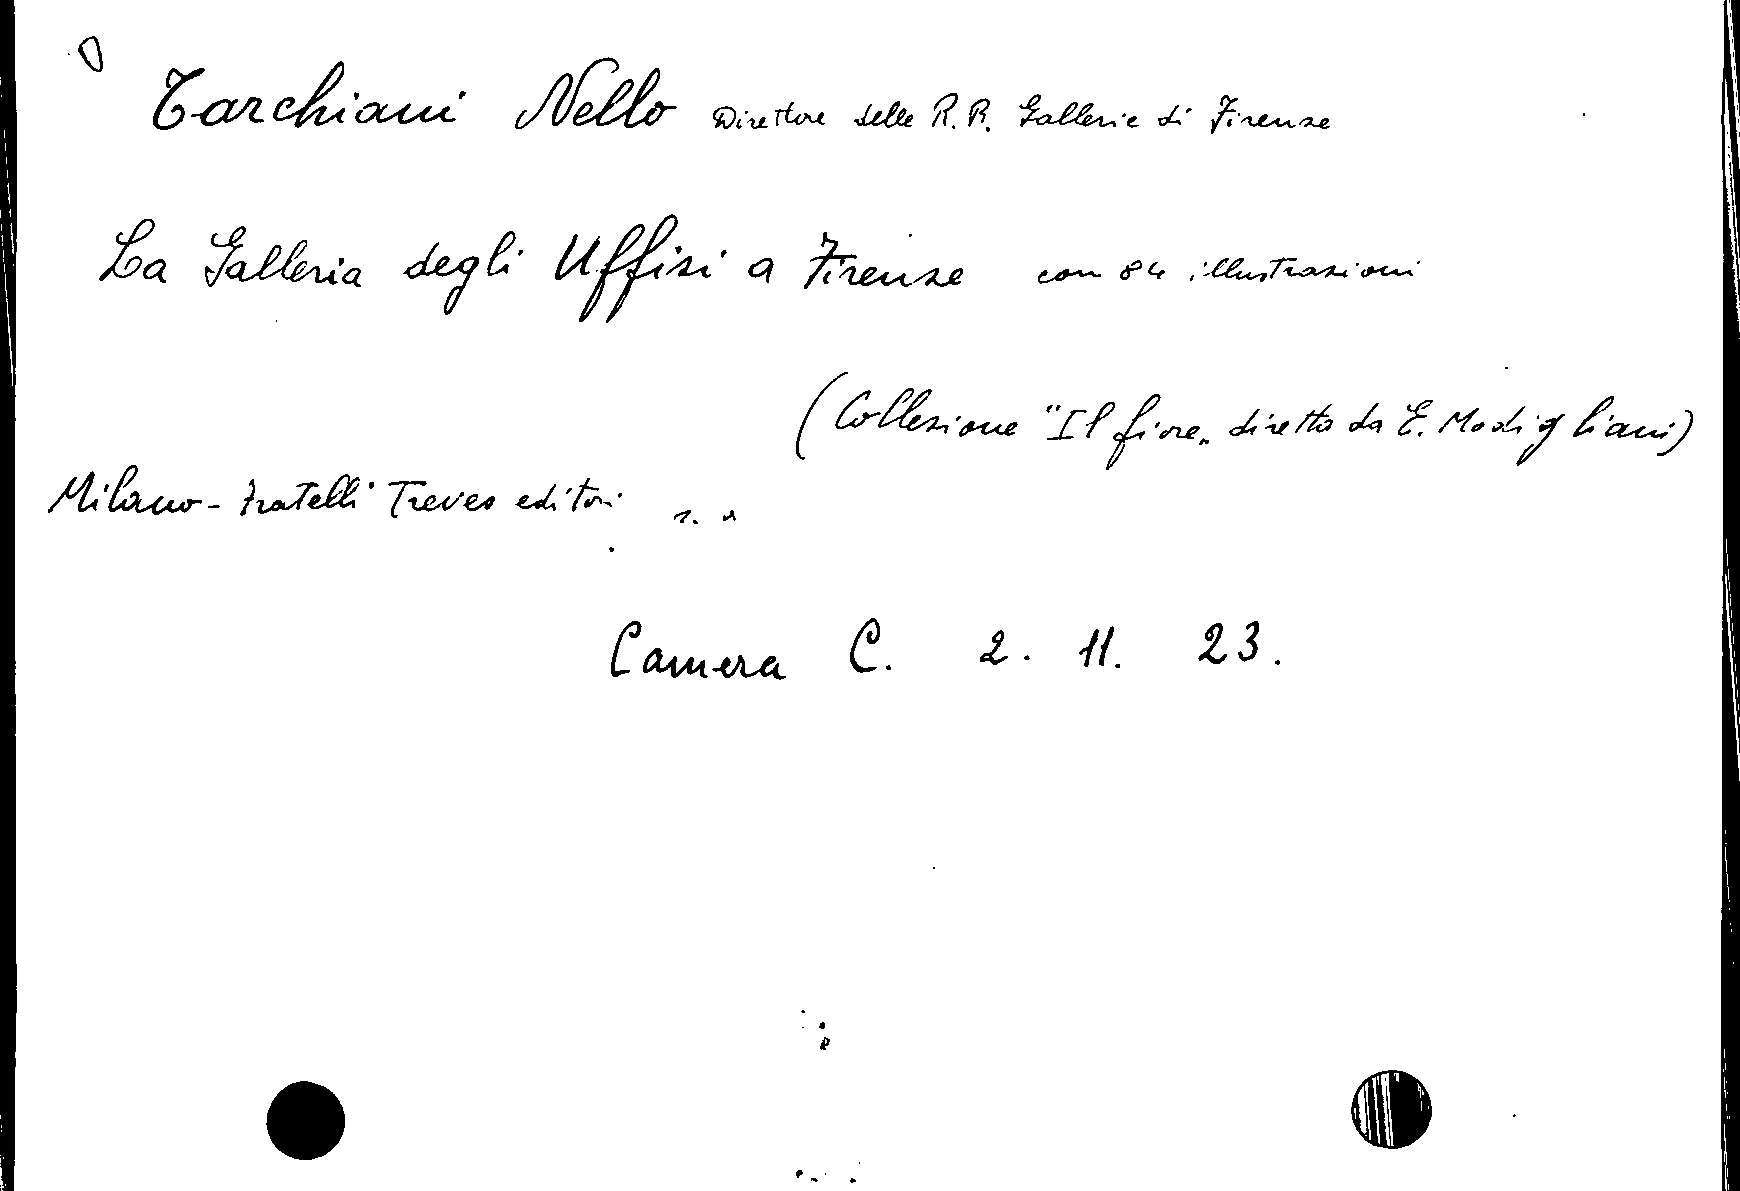 Tarchiani Nello Direttore delle R.R. Gallerie di Firenze
La Galleria degli Uffizi a Firenze con 84 illustrazioni
(Collezione "Il fiore„ diretta da E. Modigliani)
Milano - Fratelli Treves editori s. a
Camera C. 2. 11. 23.